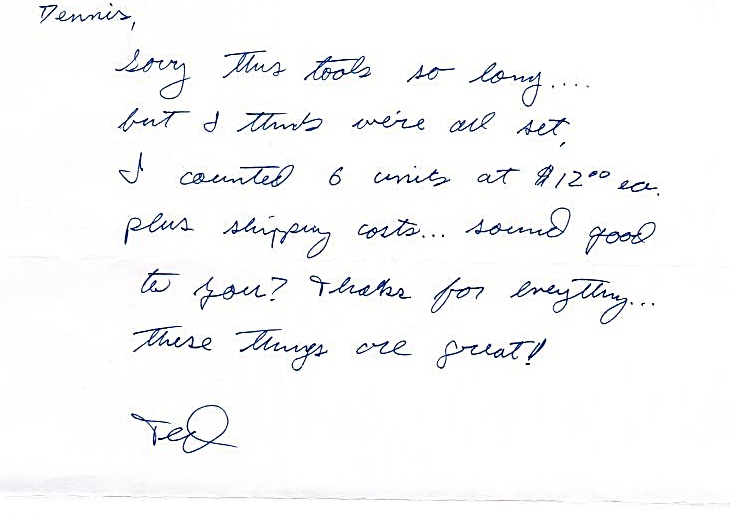 Dennis,
Sorry this took so long....
but I think we're all set,
I counted 6 units at $12⁰⁰ ea.
plus shipping costs... sound good
to you? Thanks for everything...
these things are great!
Ted